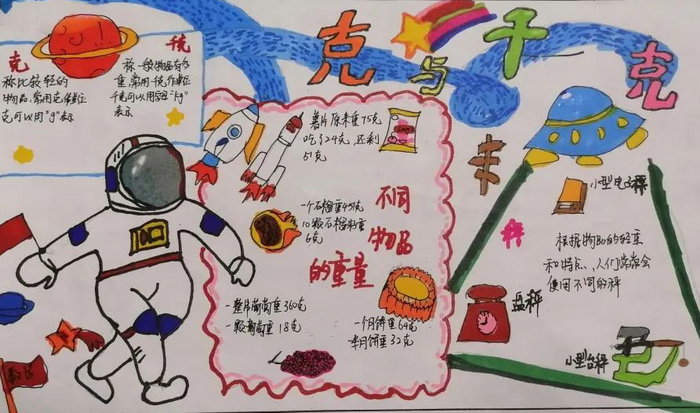 克与千克
克
称比较轻的
物品,常用克作单位
克可以用"g"表示
千克
称一般物品有多
重,常用千克作单位
千克可以用字母"kg"
表示
薯片原来重75克
吃了24克,还剩
51克
不同
物品
的重量
一个石榴重451克
10颗石榴籽重
6克
一整片葡萄重360克
一颗葡萄重18克
一个月饼重64克
半月饼重32克
秤
小型电子秤
盘秤
小型台秤
根据物品的轻重
和特长,人们常常会
使用不同的秤